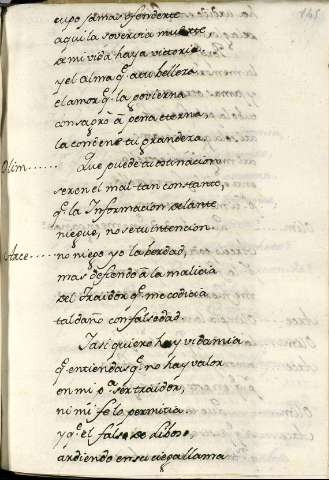 145
cupo jamas esconderte
aqui la soverbia muerte
de mi vida haya victoria.
y el alma q̃ a tu belleza
el amor q̃ la govierna
consagró à pena eterna,
la condene tu grandeza.
Olim...... Que puede tu ostinacion
ser en el mal tan constante,
q̃ la Informacion delante
niegue, no se tu intencion.
Arce.... no niego yo la berdad,
mas defiendo à la malicia
del Traidor q̃ me codicia
tal daño con falsedad.
Y asi quiero hoy vida mia
q̃ entiendas q̃ no hay valor
en mi pª ser traidor,
ni mi fe lo permitia.
y q̃ el falso de
ardiendo en su ciega llama